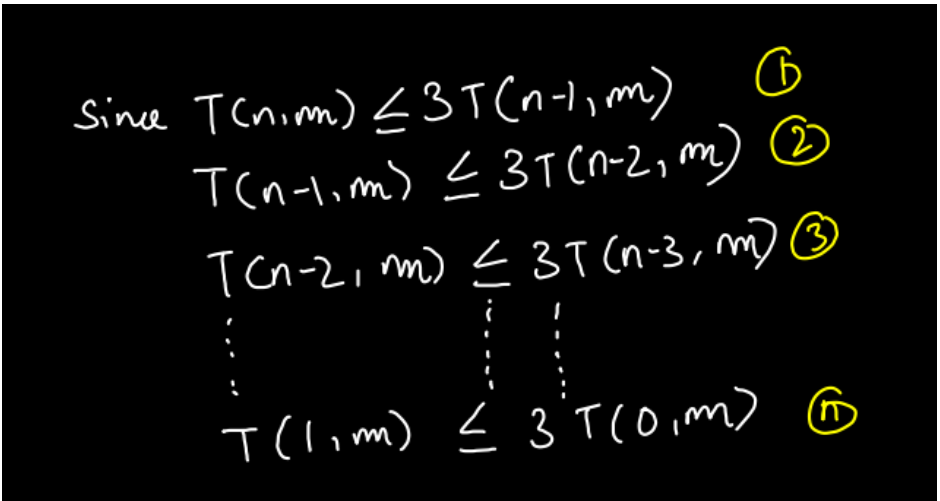 Since T(n,m) ≤ 3T(n-1,m) ①
T(n-1,m) ≤ 3T(n-2,m) ②
T(n-2,m) ≤ 3T(n-3,m) ③
T(1,m) ≤ 3T(0,m) ⓝ